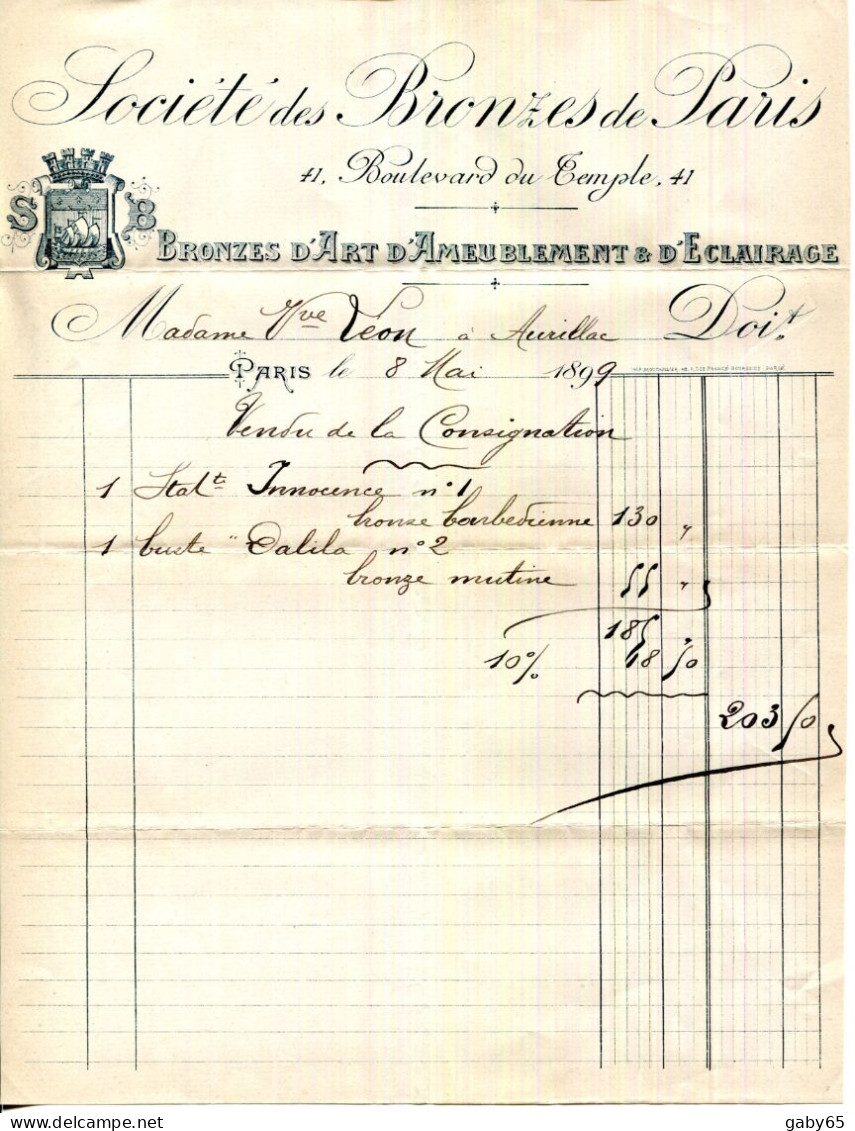 Société des Bronzes de Paris
41, Boulevard du Temple, 41
S B
BRONZES D'ART D'AMEUBLEMENT & D'ECLAIRAGE
Madame Vve Léon à Aurillac Doit
PARIS le 8 Mai 1899
Vendu de la Consignation
1 Statte Innocence n° 1
bronze barbedienne 130 "
1 buste "Dalila n° 2
bronze mutine 55 "
185 "
10% 18 50
203 50
gaby65